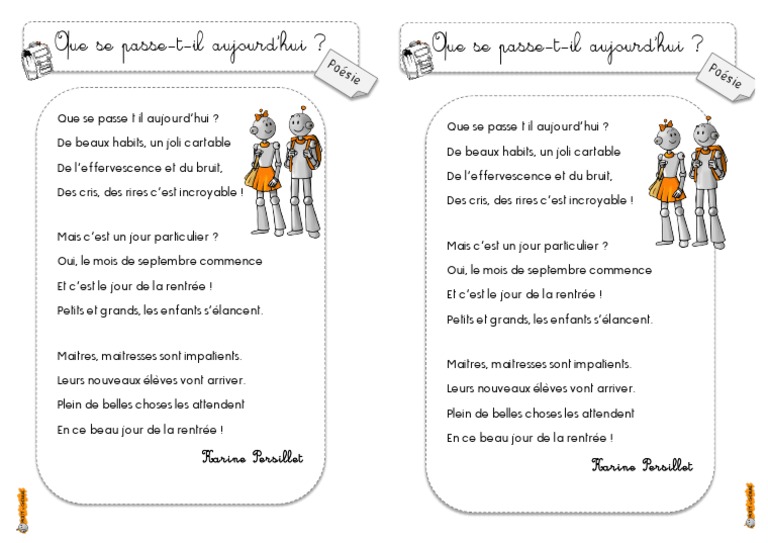 Que se passe-t-il aujourd'hui ?
Poésie
Que se passe t il aujourd'hui ?
De beaux habits, un joli cartable
De l'effervescence et du bruit,
Des cris, des rires c'est incroyable !
Mais c'est un jour particulier ?
Oui, le mois de septembre commence
Et c'est le jour de la rentrée !
Petits et grands, les enfants s'élancent.
Maitres, maitresses sont impatients.
Leurs nouveaux élèves vont arriver.
Plein de belles choses les attendent
En ce beau jour de la rentrée !
Karine Persillet
Que se passe-t-il aujourd'hui ?
Poésie
Que se passe t il aujourd'hui ?
De beaux habits, un joli cartable
De l'effervescence et du bruit,
Des cris, des rires c'est incroyable !
Mais c'est un jour particulier ?
Oui, le mois de septembre commence
Et c'est le jour de la rentrée !
Petits et grands, les enfants s'élancent.
Maitres, maitresses sont impatients.
Leurs nouveaux élèves vont arriver.
Plein de belles choses les attendent
En ce beau jour de la rentrée !
Karine Persillet